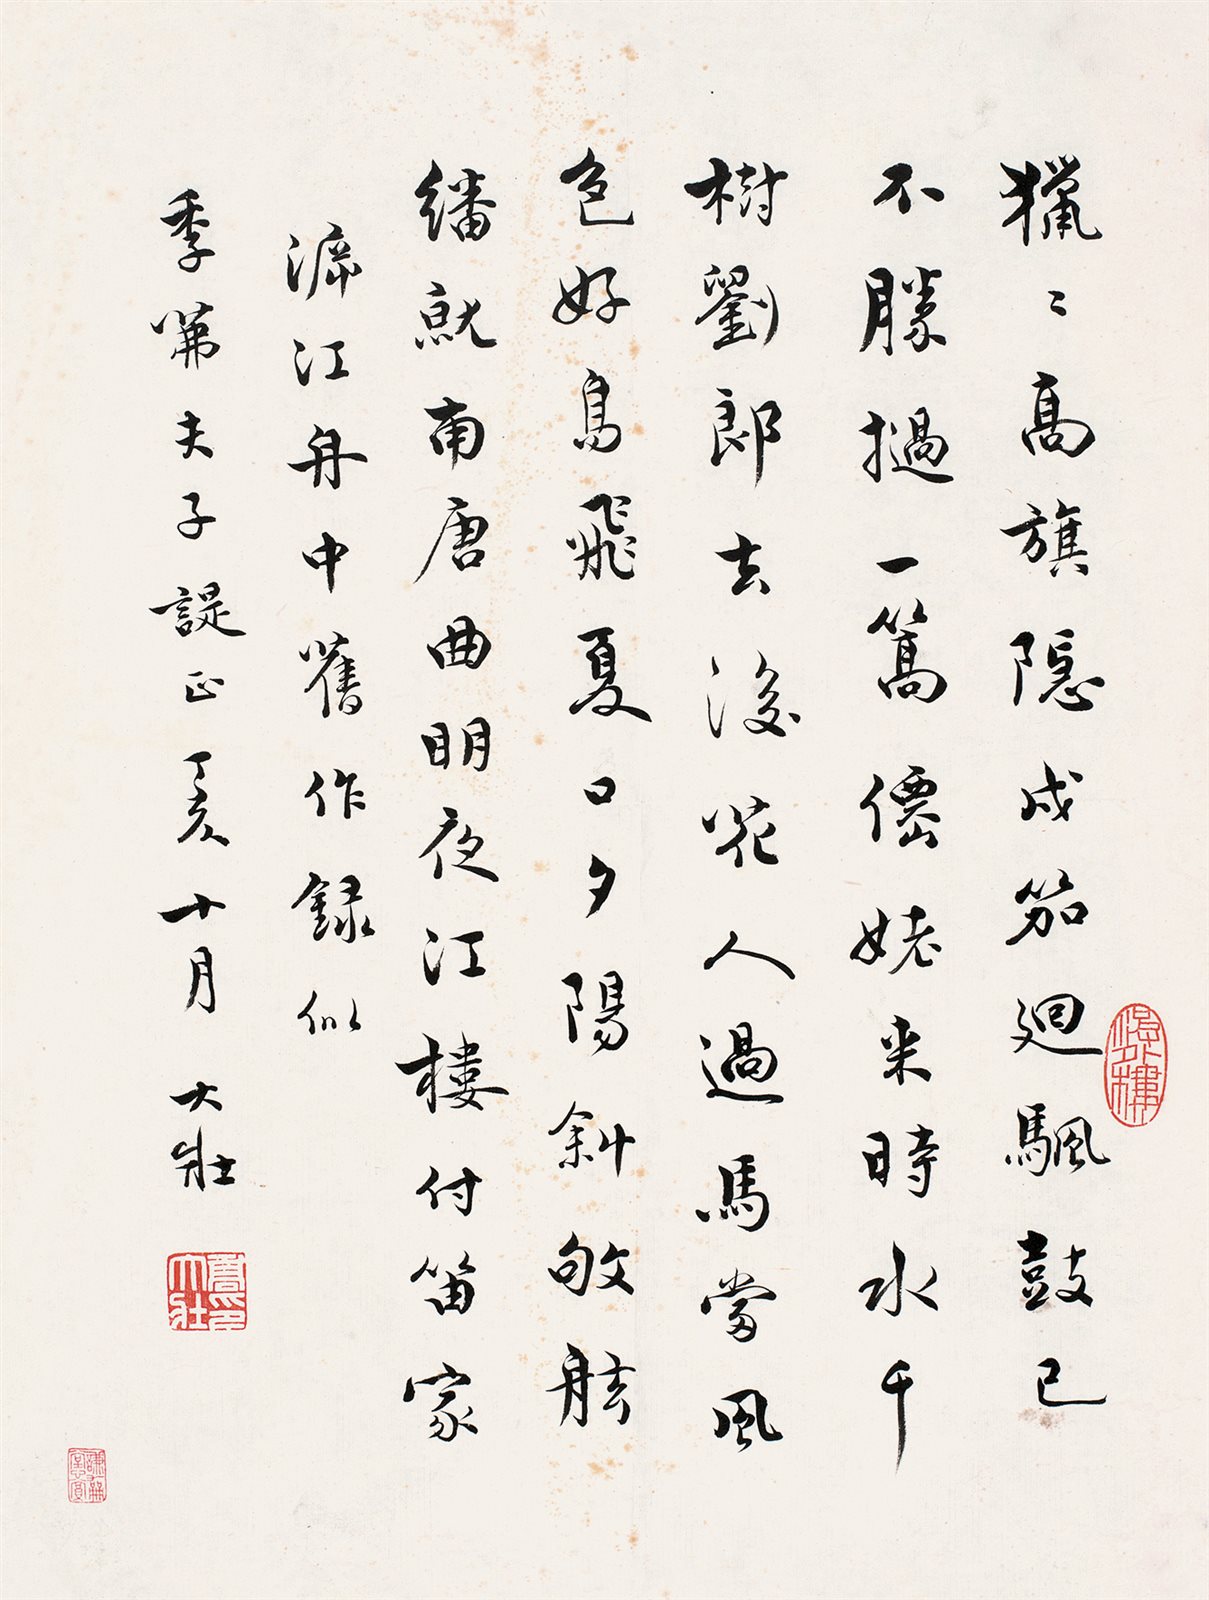 獵〻高旗隱戍笳迴颿鼓已
不勝撾一篙僊姥来時水千
樹劉郎去後花人過馬當風
色好鳥飛夏口夕陽斜敂舷
繙就南唐曲明夜江樓付笛家
江舟中舊作録似
季茀夫子諟正丁亥十月 大壯